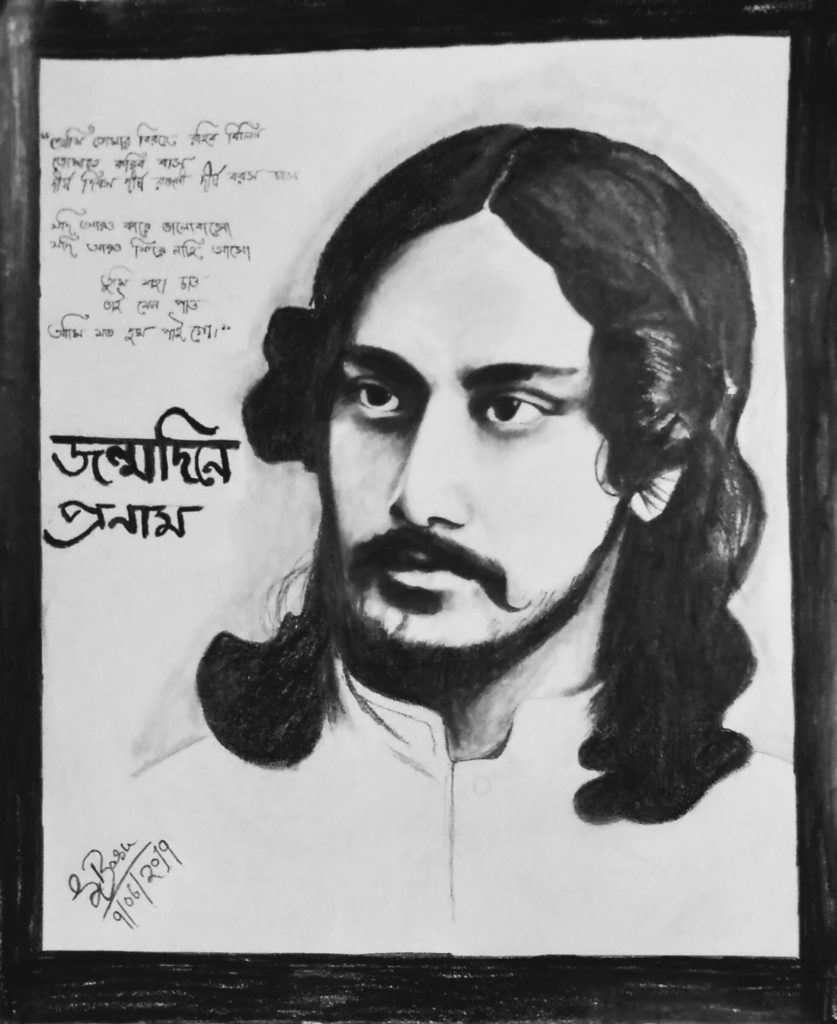 "আমি তোমার বিরহে রহিব বিলিন
তোমাতে করিব বাস
দীর্ঘ দিবস দীর্ঘ রজনী দীর্ঘ বরস মাস
যদি আরও কারে ভালোবাসো
যদি আরও ফিরে নাহি আসো
তুমি যাহা চাও
তাই যেন পাও
আমি যত দুঃখ পাই গো।"
জন্মদিনে
প্রনাম
S Basu
9/06/2019